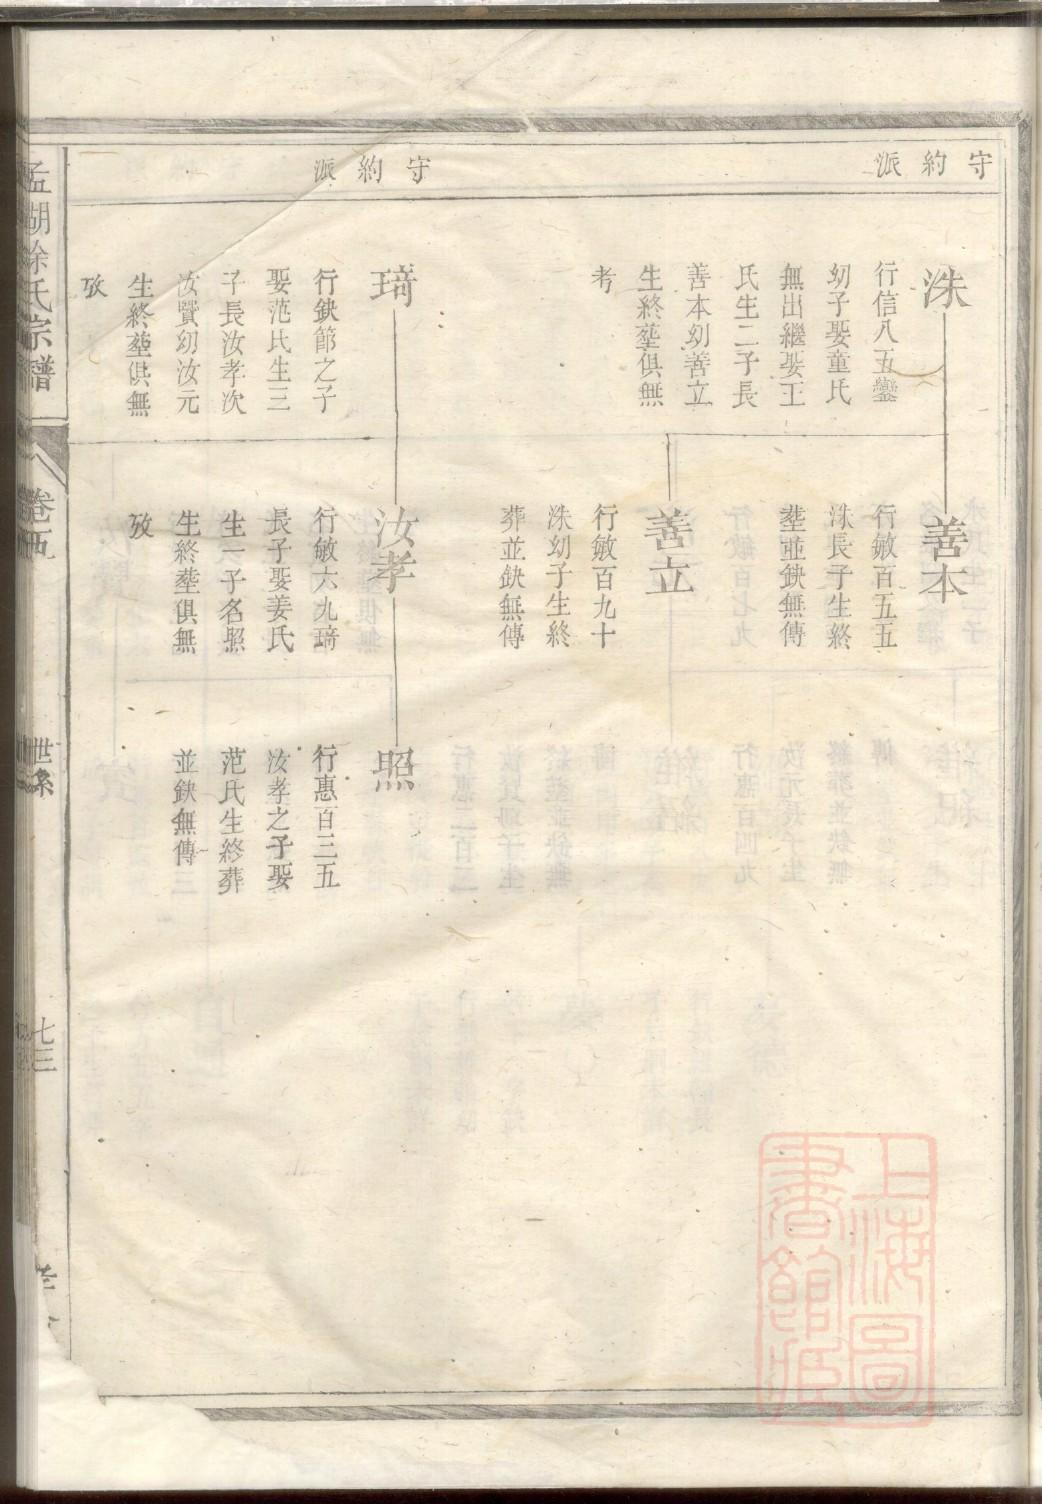 守約派
守約派
洙
行信八五鑾
幼子娶童氏
無出繼娶王
氏生二子長
善本幼善立
生終塟俱無
考
琦
行缺節之子
娶范氏生三
子長汝孝次
汝賢幼汝元
生終塟俱無
攷
善本
行敏百五五
洙長子生終
塟並缺無傳
善立
行敏百九十
洙幼子生終
葬並缺無傳
汝孝
行敏六九琦
長子娶姜氏
生一子名照
生終塟俱無
攷
照
行惠百三五
汝孝之子娶
范氏生終葬
並缺無傳
孟湖徐氏宗譜
卷五
世系
七三
上海圖書館藏